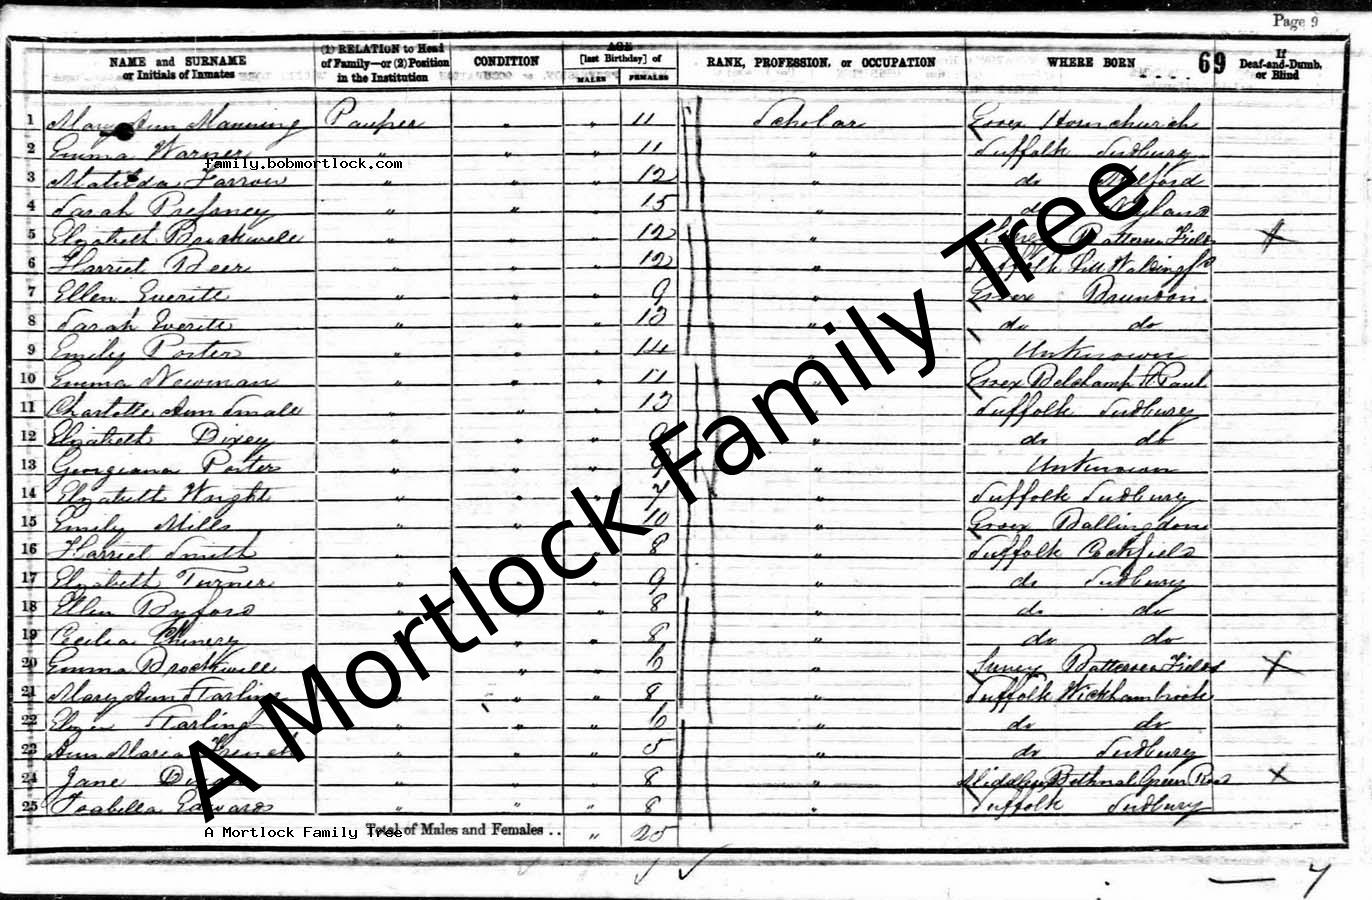 Page 9
NAME and SURNAME or Initials of Inmates (1) RELATION to Head of Family—or (2) Position in the Institution CONDITION AGE [last Birthday] of MALES FEMALES RANK, PROFESSION, or OCCUPATION WHERE BORN 69 If Deaf-and-Dumb, or Blind
1 Mary Ann Manning Pauper " " 11 Scholar Essex Hornchurch
2 Emma Warner " " " 11 " Suffolk Sudbury
family.bobmortlock.com
3 Matilda Farrow " " " 12 " do Melford
4 Sarah Pressney " " " 15 " do Nyland
5 Elizabeth Brockwell " " " 12 " Battersea Fields
6 Harriet Beer " " " 12 " Suffolk
7 Ellen Everitt " " " 9 " Essex Brundon
8 Sarah Everitt " " " 13 " do do
9 Emily Porter " " " 14 " Unknown
10 Emma Newman " " " 11 " Essex Belchamp St Paul
11 Charlotte Ann Smale " " " 13 " Suffolk Sudbury
12 Elizabeth Dixey " " " " do do
13 Georgiana Porter " " " 9 " Unknown
14 Elizabeth Wright " " " 7 " Suffolk Sudbury
15 Emily Mills " " " 10 " Essex Ballingdon
16 Harriet Smith " " " 8 " Suffolk Cockfield
17 Elizabeth Turner " " " 9 " do Sudbury
18 Ellen Byford " " " 8 " do do
19 Cecilia Chinery " " " 8 " do do
20 Emma Brockwell " " " 6 " Surrey Battersea Fields
21 Mary Ann Starling " " 8 " Suffolk Wickhambrook
22 Starling " " " 6 " do do
23 Ann Maria French " " " 5 " do Sudbury
24 Jane " " " 8 " Middlesex Bethnal Green Road
25 Isabella Edwards " " " 8 " Suffolk Sudbury
Total of Males and Females .. " 25
A Mortlock Family Tree
A Mortlock Family Tree